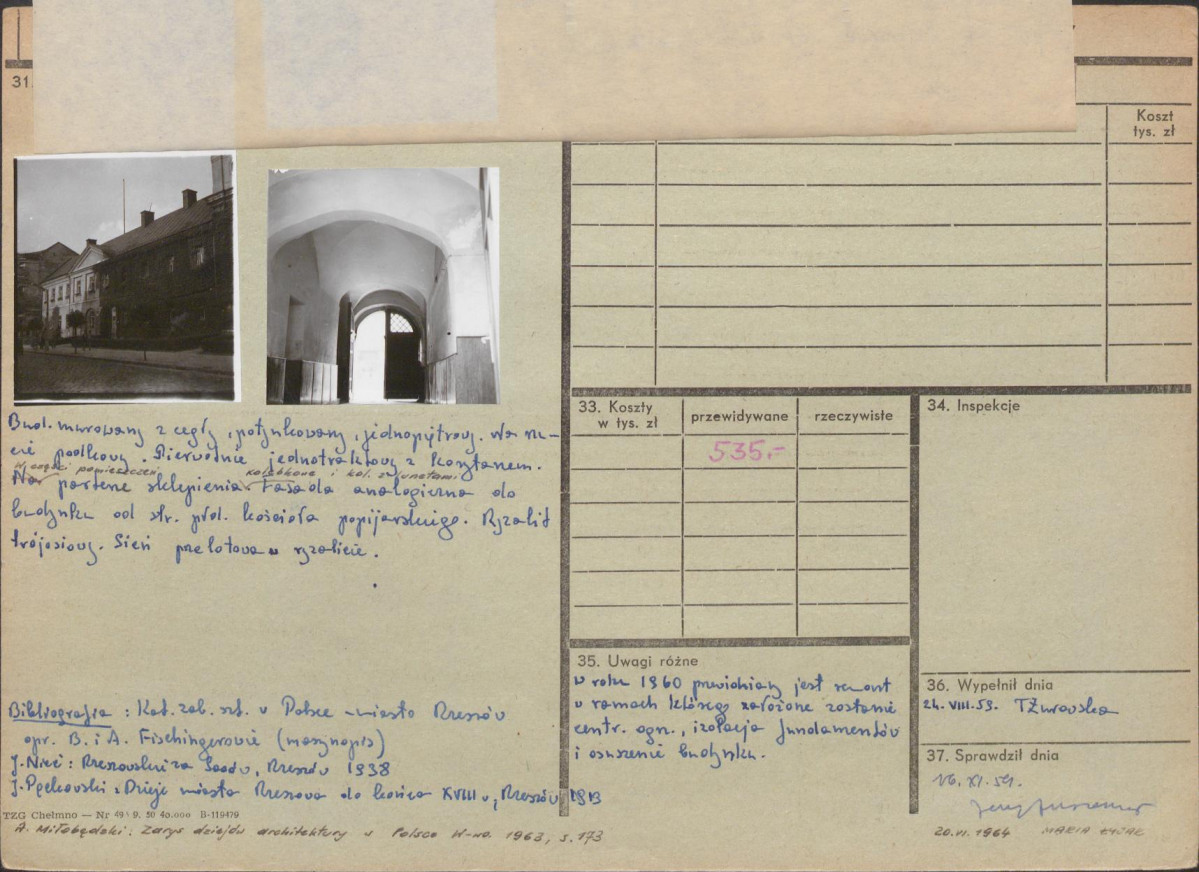 31.
Koszt
tys. zł
Bud. murowany z cegły, potynkowany, jednopiętrowy. Na rzu-
cie podkowy. Pierwotnie jednotraktowy z korytarzem.
W części pomieszczeń kolebkowe i kol. z lunetami
Na parterze sklepienia. Fasada analogiczna do
budynku od str. płd. kościoła popijarskiego. Ryzalit
trójosiowy. Sień przelotowa w ryzalicie.
Bibliografia: Kat. zab. szt. w Polsce - miasto Rzeszów
opr. B. i A. Fischingerowie (maszynopis)
J. Nieć: Rzeszowskie za Sasów, Rzeszów 1938
J. Pęckowski: Dzieje miasta Rzeszowa do końca XVIII w., Rzeszów 1913
TZG Chełmno — Nr 49 9. 50 40.000 B-119479
A. Miłobędzki: Zarys dziejów architektury w Polsce W-wa. 1963, s. 173
33. Koszty
w tys. zł
przewidywane
rzeczywiste
535.-
34. Inspekcje
35. Uwagi różne
w roku 1960 przewidziany jest remont
w ramach którego założone zostanie
centr. ogrz., izolacja fundamentów
i osuszenie budynku.
36. Wypełnił dnia
24. VIII. 59. T Żurowska
37. Sprawdził dnia
16. XI. 59.
20.VI. 1964 MARIA